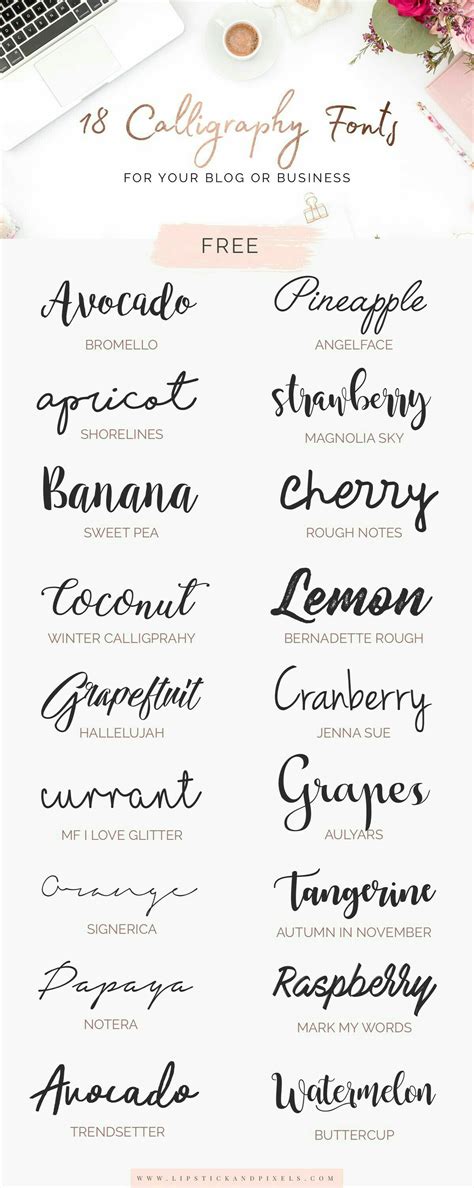 18 Calligraphy Fonts
FOR YOUR BLOG OR BUSINESS
FREE
Avocado
BROMELLO
Pineapple
ANGELFACE
apricot
SHORELINES
strawberry
MAGNOLIA SKY
Banana
SWEET PEA
Cherry
ROUGH NOTES
Coconut
WINTER CALLIGPRAHY
Lemon
BERNADETTE ROUGH
Grapeftuit
HALLELUJAH
Cranberry
JENNA SUE
currant
MF I LOVE GLITTER
Grapes
AULYARS
Orange
SIGNERICA
Tangerine
AUTUMN IN NOVEMBER
Papaya
NOTERA
Raspberry
MARK MY WORDS
Avocado
TRENDSETTER
Watermelon
BUTTERCUP
WWW.LIPSTICKANDPIXELS.COM